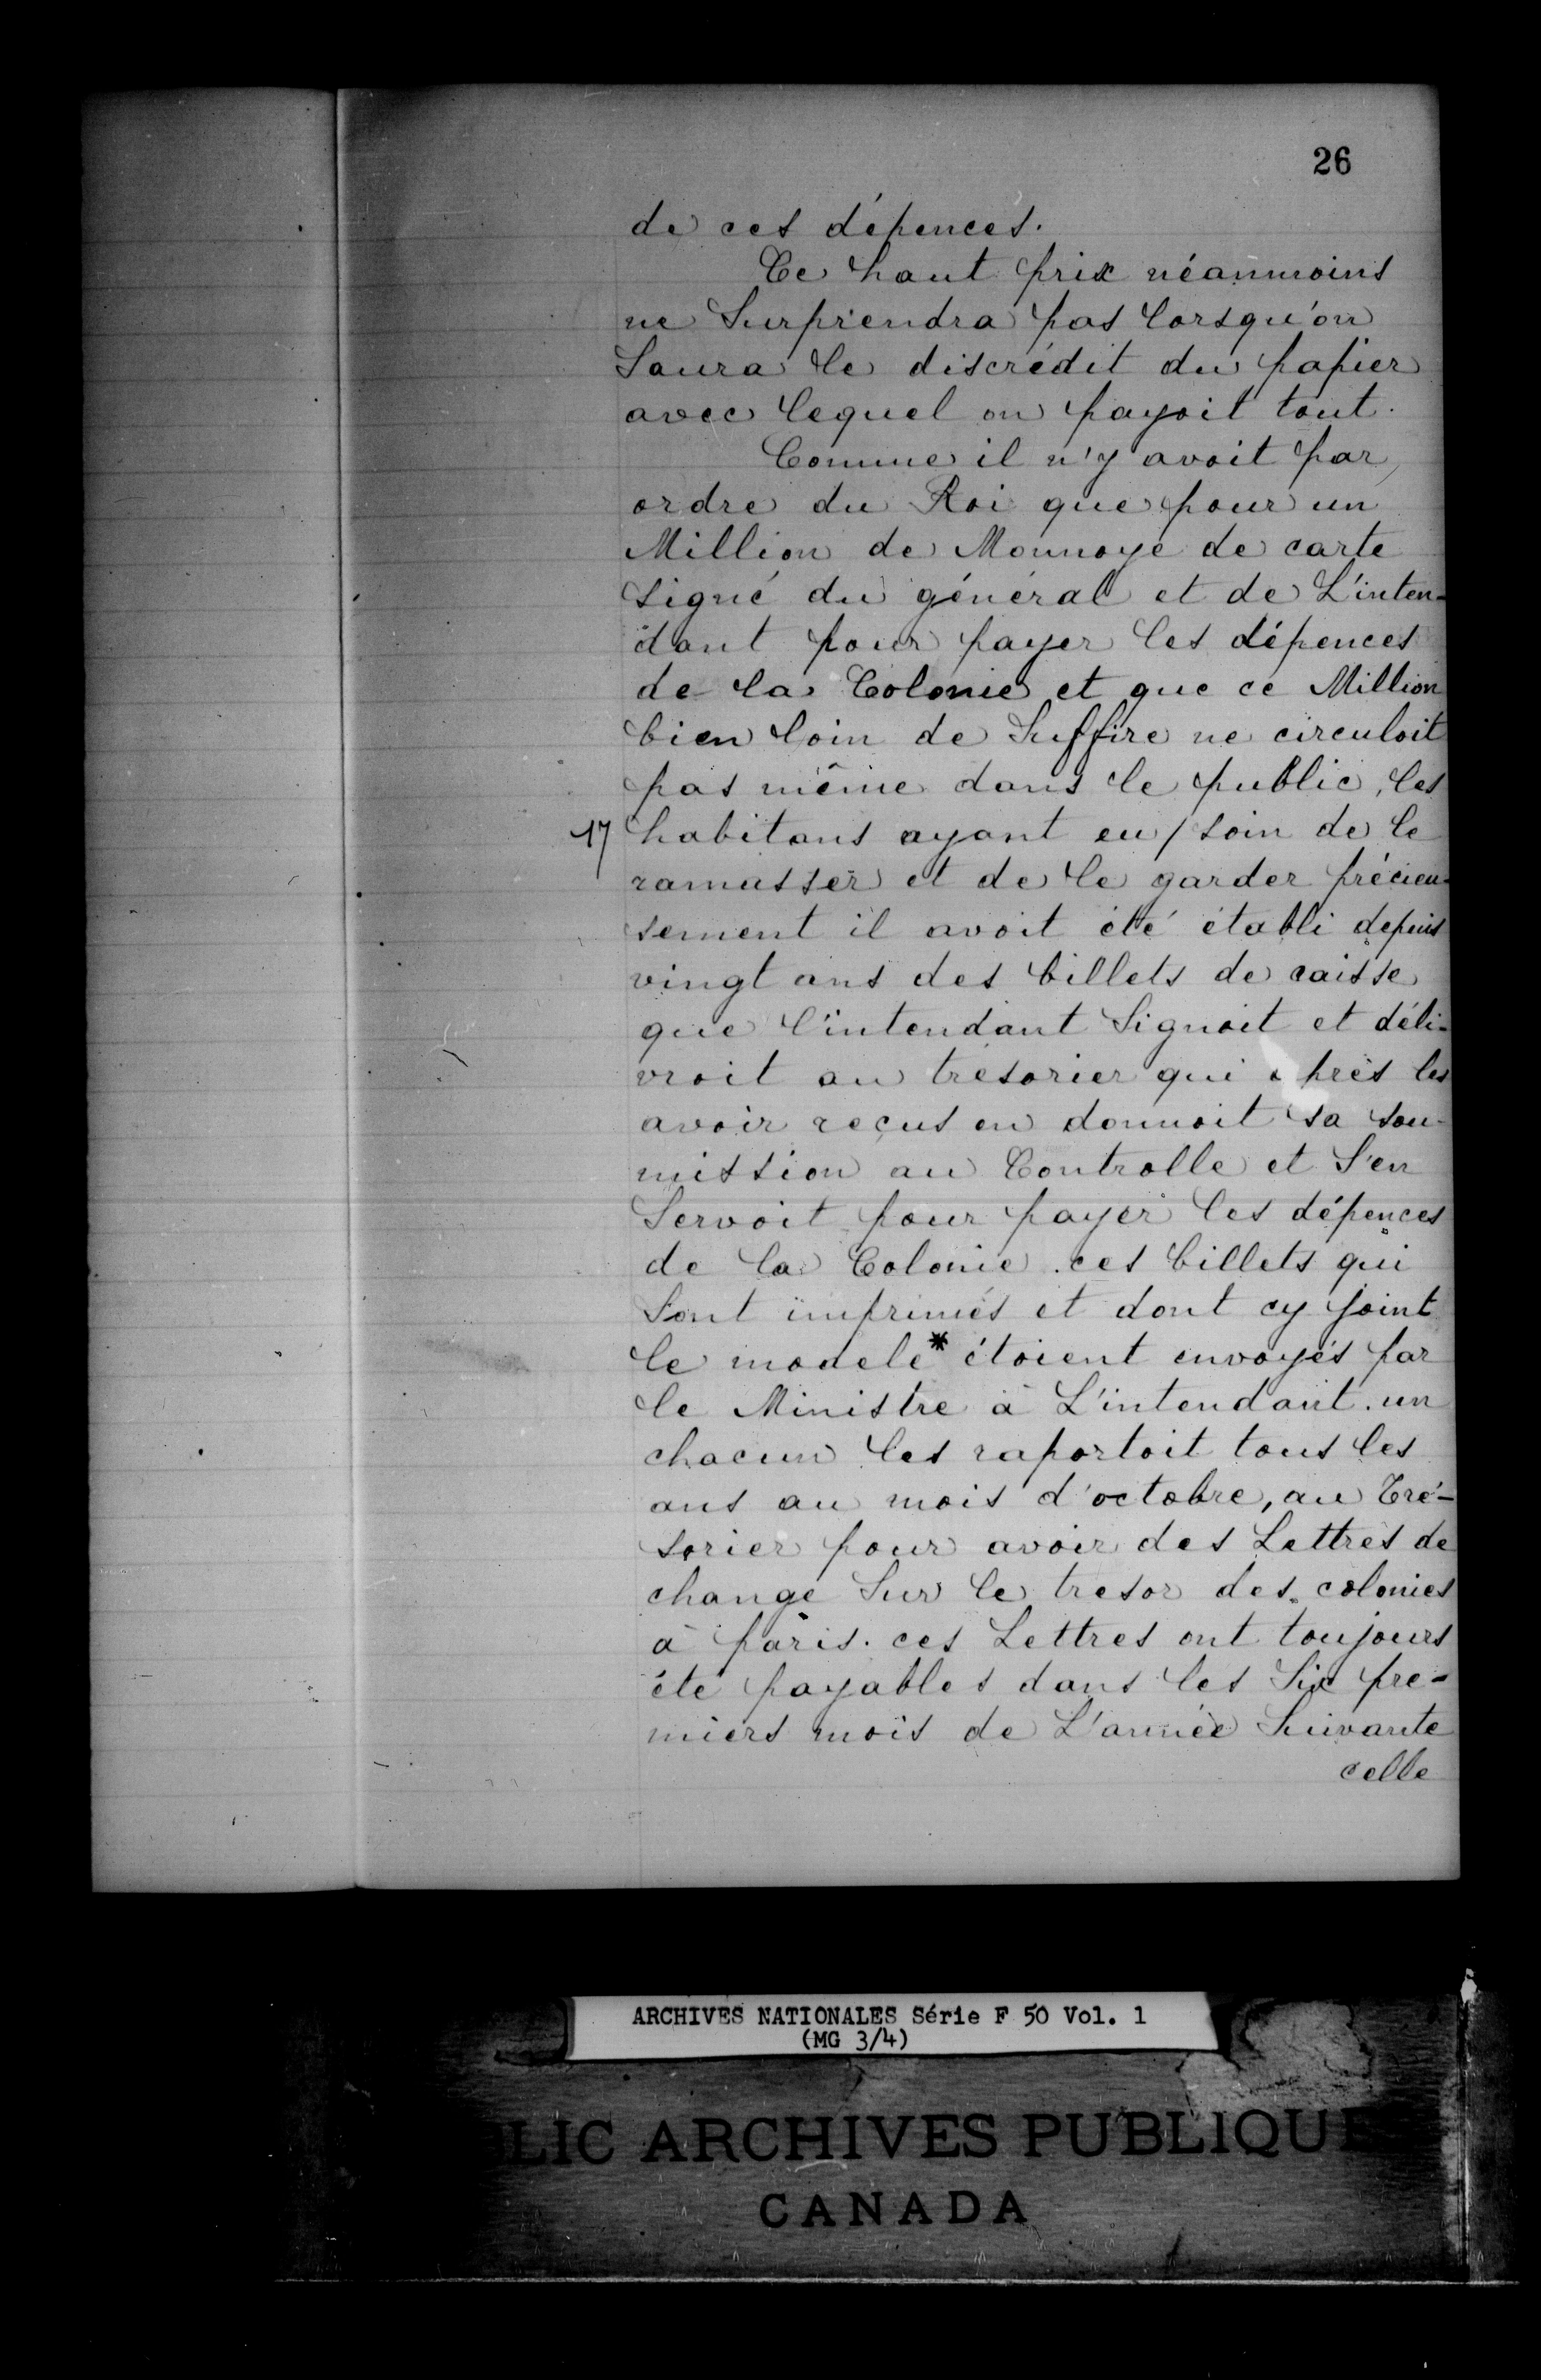 26
de ces dépences.
Ce haut prix néanmoins
ne Surprendra pas lorsqu'on
Saura le discrédit du papier
avec lequel on payoit tout.
Comme il n'y avoit par
ordre du Roi que pour un
Million de Monnoye de carte
signé du général et de L'inten-
dant pour payer les dépences
de la Colonie et que ce Million
bien loin de Suffire ne circuloit
pas même dans le public, les
17 habitans ayant eu / soin de le
ramasser et de le garder précieu-
sement il avoit été établi depuis
vingt ans des billets de caisse
que l'intendant Signoit et déli-
vroit au tresorier qui après les
avoir reçus en donnoit sa sou-
mission au Controlle et S'en
Servoit pour payer les dépences
de la Colonie. ces billets qui
Sont imprimés et dont cy joint
le modele* étoient envoyés par
le Ministre à L'intendant. un
chacun les raportoit tous les
ans au mois d'octobre, au Tré-
sorier pour avoir des Lettres de
change Sur le tresor des colonies
à paris. ces Lettres ont toujours
été payables dans les Six pre-
miers mois de L'année Suivante
celle
ARCHIVES NATIONALES Série F 50 Vol. 1
(MG 3/4)
LIC ARCHIVES PUBLIQUE
CANADA